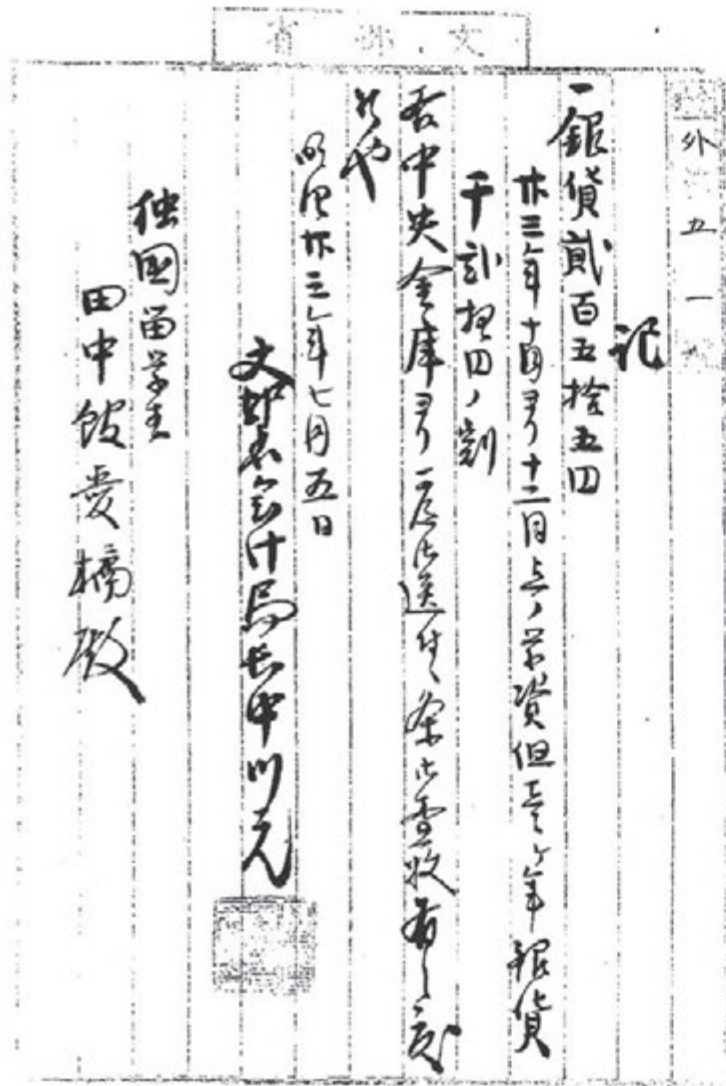 文部省
外 五一
記
一銀貨貳百五拾五円
廿三年十月ヨリ十二月迄ノ学資但壱ヶ年銀貨
千弐拾円ノ割
右中央金庫ヨリ御送付候条御査収有之度
候也
明治廿三年七月五日
文部省会計局長中川元
独国留学生
田中館愛橘殿